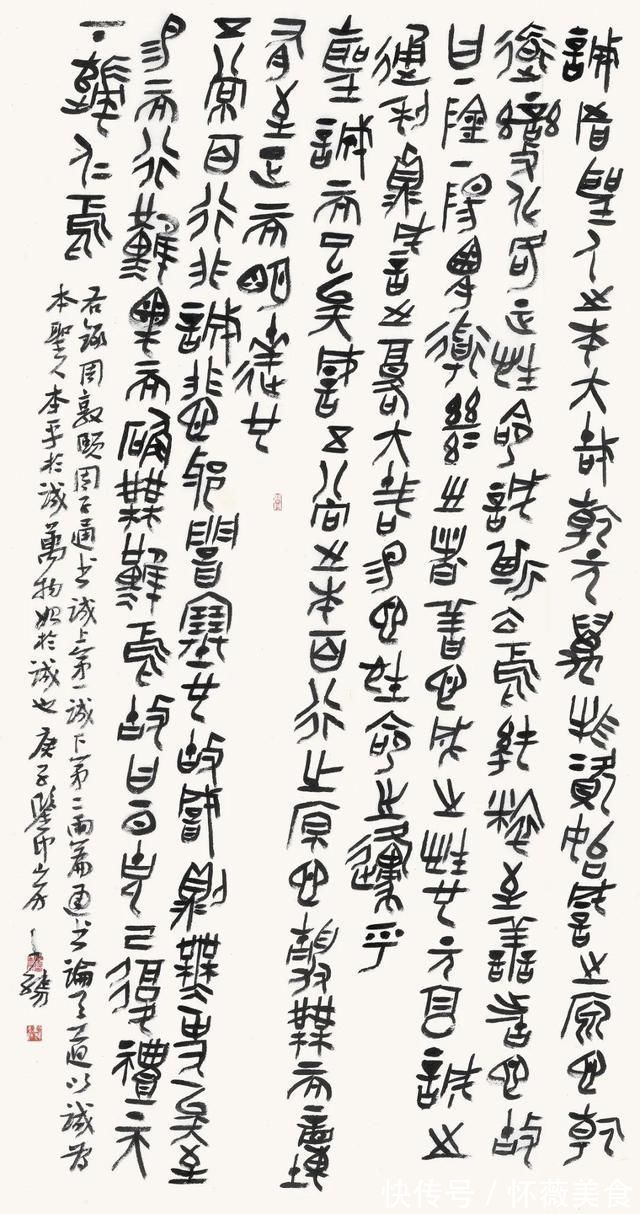 誠者聖人之本大哉乾元萬物資始誠之原也乾
道變化各正性命誠斯立焉純粹至善者也故
曰一陰一陽之謂道繼之者善也成之者性也元亨誠之
通利貞誠之復大哉易也性命之源乎
聖誠而已矣誠五常之本百行之原也靜無而動
有至正而明達也
五常百行非誠非也邪暗塞也故誠則無事矣至
易而行難果而確無難焉故曰一日克己復禮天
下歸仁焉
右錄周敦頤周子通書誠上第一誠下第二兩篇通書論道以誠為
本聖人本乎於誠萬物始於誠也庚子印山房
快传号/怀薇美食